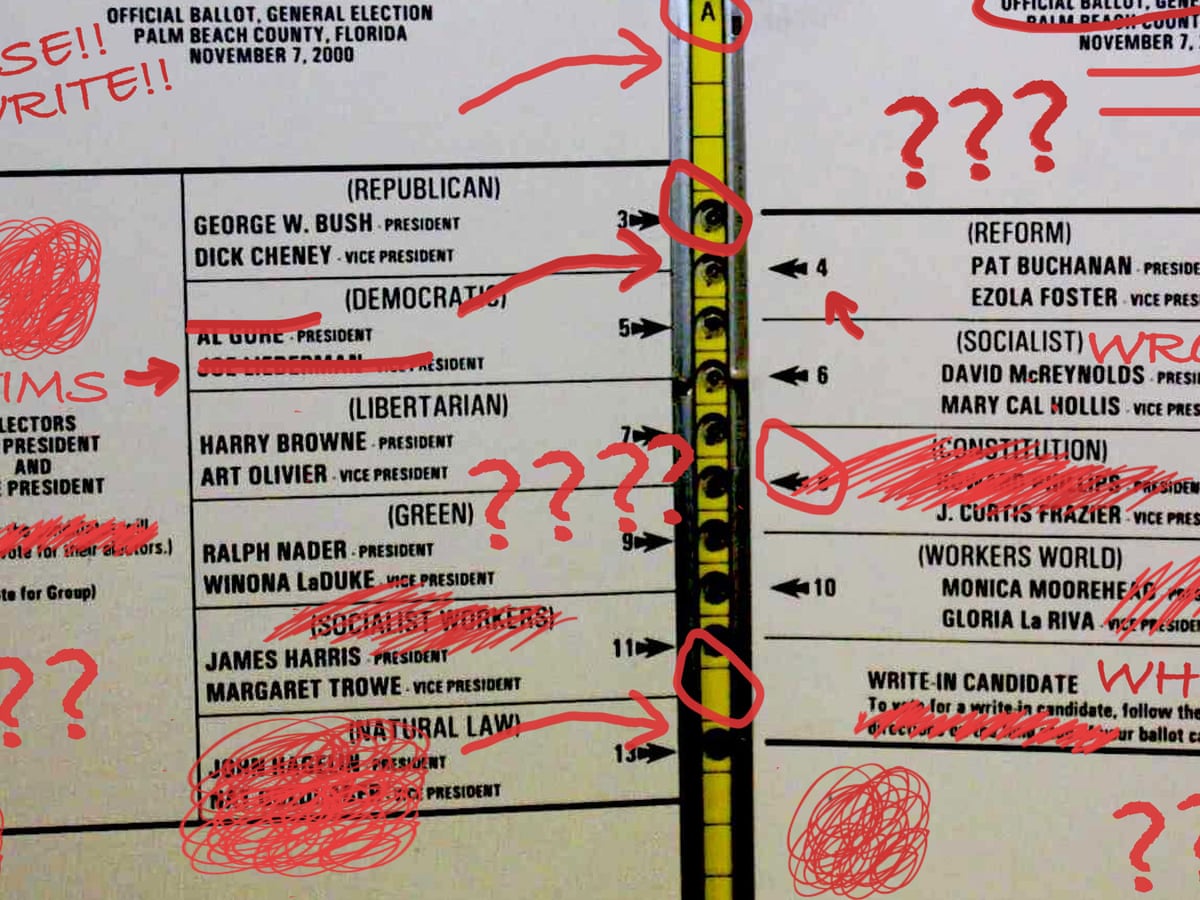 OFFICIAL BALLOT, GENERAL ELECTION
PALM BEACH COUNTY, FLORIDA
NOVEMBER 7, 2000
SE!!
WRITE!!
A
OFFICIAL BALLOT, GENE
PALM BEACH COUNT
NOVEMBER 7,
???
(REPUBLICAN)
GEORGE W. BUSH - PRESIDENT
DICK CHENEY - VICE PRESIDENT
3
(DEMOCRATIC)
AL GORE - PRESIDENT
PRESIDENT
5
(LIBERTARIAN)
HARRY BROWNE - PRESIDENT
ART OLIVIER - VICE PRESIDENT
7
????
(GREEN)
RALPH NADER - PRESIDENT
WINONA LaDUKE - VICE PRESIDENT
9
(SOCIALIST WORKERS)
JAMES HARRIS - PRESIDENT
MARGARET TROWE - VICE PRESIDENT
11
(NATURAL LAW)
JOHN HAGELIN - PRESIDENT
VICE PRESIDENT
13
TIMS
LECTORS
PRESIDENT
AND
PRESIDENT
vote for their electors.)
te for Group)
??
(REFORM)
PAT BUCHANAN - PRESIDE
EZOLA FOSTER - VICE PRES
4
(SOCIALIST)
WRO
DAVID McREYNOLDS - PRESI
MARY CAL HOLLIS - VICE PRES
6
(CONSTITUTION)
HOWARD PHILLIPS - PRESIDEN
J. CURTIS FRAZIER - VICE PRES
8
(WORKERS WORLD)
MONICA MOOREHEAD - PRES
GLORIA La RIVA - VICE PRESIDEN
10
WRITE-IN CANDIDATE
WH
To vote for a write-in candidate, follow the
ur ballot ca
??